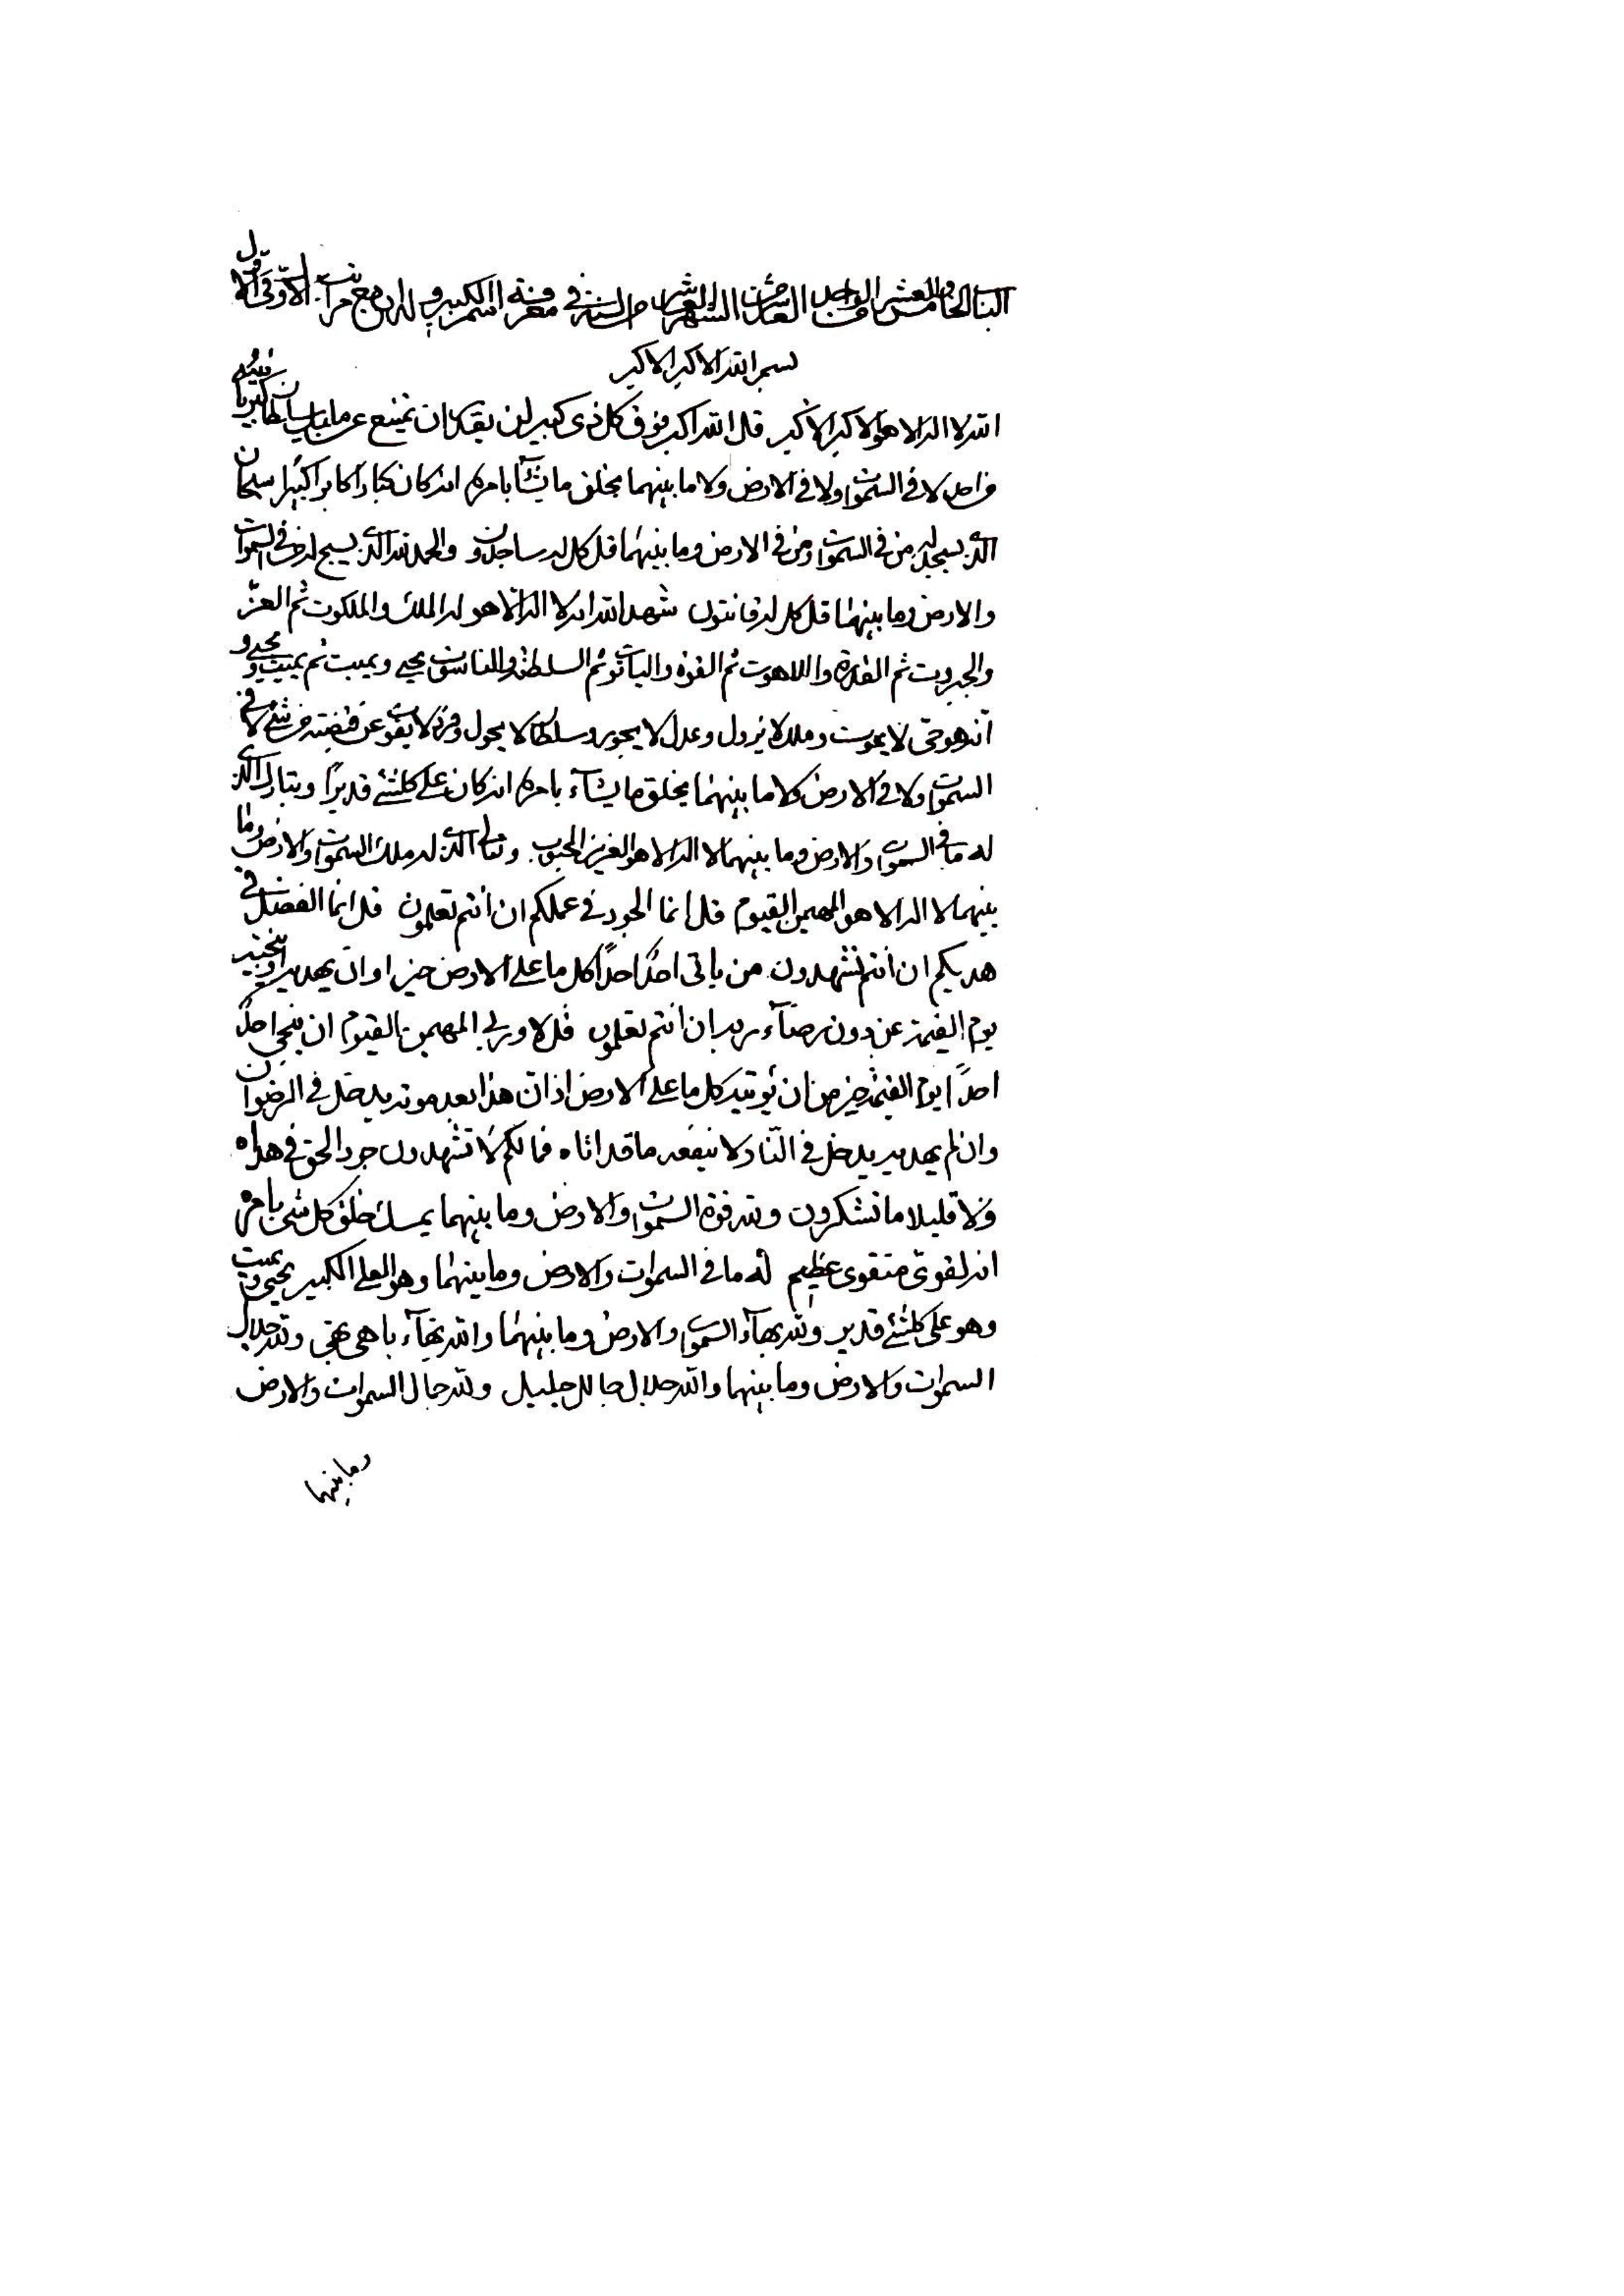 الباب الخامس والعشر من الواحد العاشر من الشهر العاشر من السنة في معرفة اسم الكبير وله اربع مراتب الاول في الاول
بسم الله الاكبر الاكبر
الله لا اله الا هو الاكبر الاكبر قل الله اكبر فوق كل ذي كبير لن يقدر ان يمتنع عن مليك سلطان كبريائيته
من احد لا في السموات ولا في الارض ولا ما بينهما يخلق ما يشآء بامره انه كان كبارا كابرا كبيرا سبحان
الذي يسجد له من في السموات ومن في الارض وما بينهما قل كل له ساجدون والحمد لله الذي يسبح له من في السموات
والارض وما بينهما قل كل له قانتون شهد الله انه لا اله الا هو له الملك والملكوت ثم العزّ
والجبروت ثم القدرة واللاهوت ثم القوة والياقوت ثم السلطنة والناسوت يحيي ويميت ثم يميت ويحيي و
انه هو حيّ لا يموت وملك لا يزول وعدل لا يجور وسلطان لا يحول وفرد لا يفوت عن قبضته من شئ لا في
السموات ولا في الارض ولا ما بينهما يخلق ما يشآء بامره انه كان على كلشئ قديرًا وتبارك الذي
له ما في السموات والارض وما بينهما لا اله الا هو العزيز المحبوب وتعالى الذي له ملك السموات والارض وما
بينهما لا اله الا هو المهيمن القيوم قل انما الجود في عملكم ان انتم تعلمون قل انما الفضل في
هديكم ان انتم تشهدون من ياتى احدًا احدًا كل ما على الارض خير او ان يهديه وينجيه
يوم القيمة عن دون رضآء ربه ان انتم تعلمون قل لا وربي المهيمن القيوم ان ينجي احدًا
احدًا يوم القيمة خير من ان يؤتيه كل ما على الارض اذ ان هذا بعد موته يدخل في الرضوان
وان لم يهديه يدخل في النّار ولا ينفعه ما قد اتاه فما لكم لا تشهدون جود الحق في هداه
ولا قليلا ما تشكرون ولله قوة السموات والارض وما بينهما يمسك خلق كل شئ بامره
انه لقوىّ متقوى عظيم له ما في السموات والارض وما بينهما وهو العلي الكبير يحيي ويميت
وهو على كلشئ قدير ولله بهآء السموات والارض وما بينهما والله بهآء باهى بهىّ ولله جلال
السموات والارض وما بينهما والله جلال جالل جليل ولله جمال السموات والارض
وما بينهما